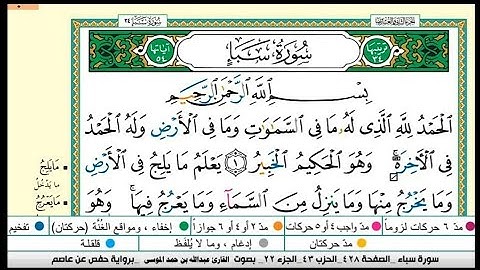 سُورَةُ سَبَإٍ ٣٤
سُورَةُ سَبَإٍ
ترتيبها ٣٤
آياتها ٥٤
بِسْمِ اللَّهِ الرَّحْمَٰنِ الرَّحِيمِ
الْحَمْدُ لِلَّهِ الَّذِي لَهُ مَا فِي السَّمَاوَاتِ وَمَا فِي الْأَرْضِ وَلَهُ الْحَمْدُ
فِي الْآخِرَةِ ۚ وَهُوَ الْحَكِيمُ الْخَبِيرُ ١ يَعْلَمُ مَا يَلِجُ فِي الْأَرْضِ
وَمَا يَخْرُجُ مِنْهَا وَمَا يَنزِلُ مِنَ السَّمَاءِ وَمَا يَعْرُجُ فِيهَا ۚ وَهُوَ
مَا يَلِجُ
ما يدخل
مَا يَعْرُجُ
مدّ ٦ حركات لزوماً
مدّ واجب ٤ أو ٥ حركات
مدّ ٢ أو ٤ أو ٦ جوازاً
إخفاء ، ومواقع الغُنَّة (حركتان)
تفخيم
مدّ حركتان
إدغام ، وما لا يُلفَظ
قلقلة
سورة سباء _الصفحة ٤٢٨_ الحزب ٤٣_ الجزء ٢٢_ بصوت القارئ عبدالله بن حمد الموسى _برواية حفص عن عاصم